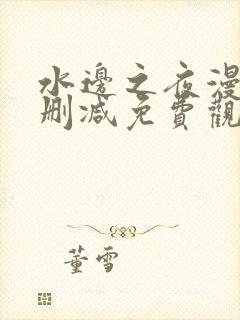 水邊之夜漫
刪減免費觀
董雪